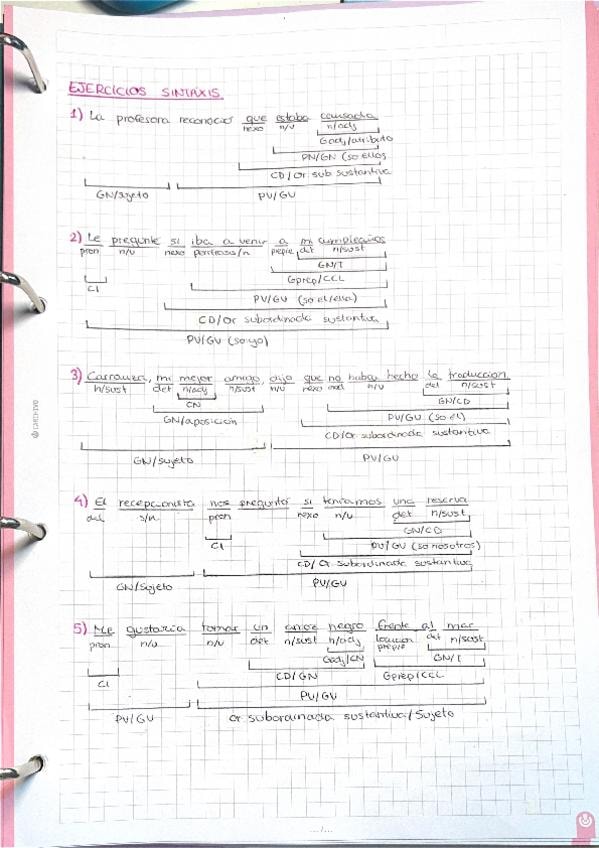 EJERCICIOS SINTAXIS.
1) La profesora reconoció que estaba cansada
nexo n/v n/adj
Gadj/atributo
PN/GN (so ella)
CD/Or sub sustantiva
GN/sujeto PV/GV
2) Le pregunté si iba a venir a mi cumpleaños
pron n/v nexo perífrasis/n det n/sust
GN/T
CI Gprep/CCL
PV/GV (so el/ella)
CD/Or subordinada sustantiva
PV/GV (so yo)
3) Carranza, mi mejor amigo, dijo que no había hecho la traducción
n/sust det n/adj n/sust n/v nexo mod n/v det n/sust
CN GN/CD
GN/aposición PV/GV (so el)
CD/Or subordinada sustantiva
GN/sujeto PV/GV
4) El recepcionista nos preguntó si teníamos una reserva
det s/n pron nexo n/v det n/sust
GN/CD
CI PV/GV (so nosotros)
CD/Or subordinada sustantiva
GN/Sujeto PV/GV
5) Me gustaría tomar un negro frente al mar
pron n/v n/v det n/sust n/adj locución det n/sust
Gadj/CN GN/T
CI CD/GN Gprep/CCL
PV/GV
PV/GV or subordinada sustantiva/Sujeto
.../...